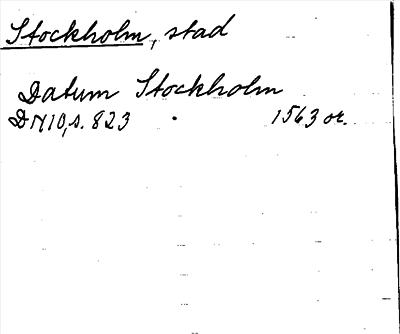 Stockholm, stad
Datum Stockholm
DN10, s. 823 1563 or.